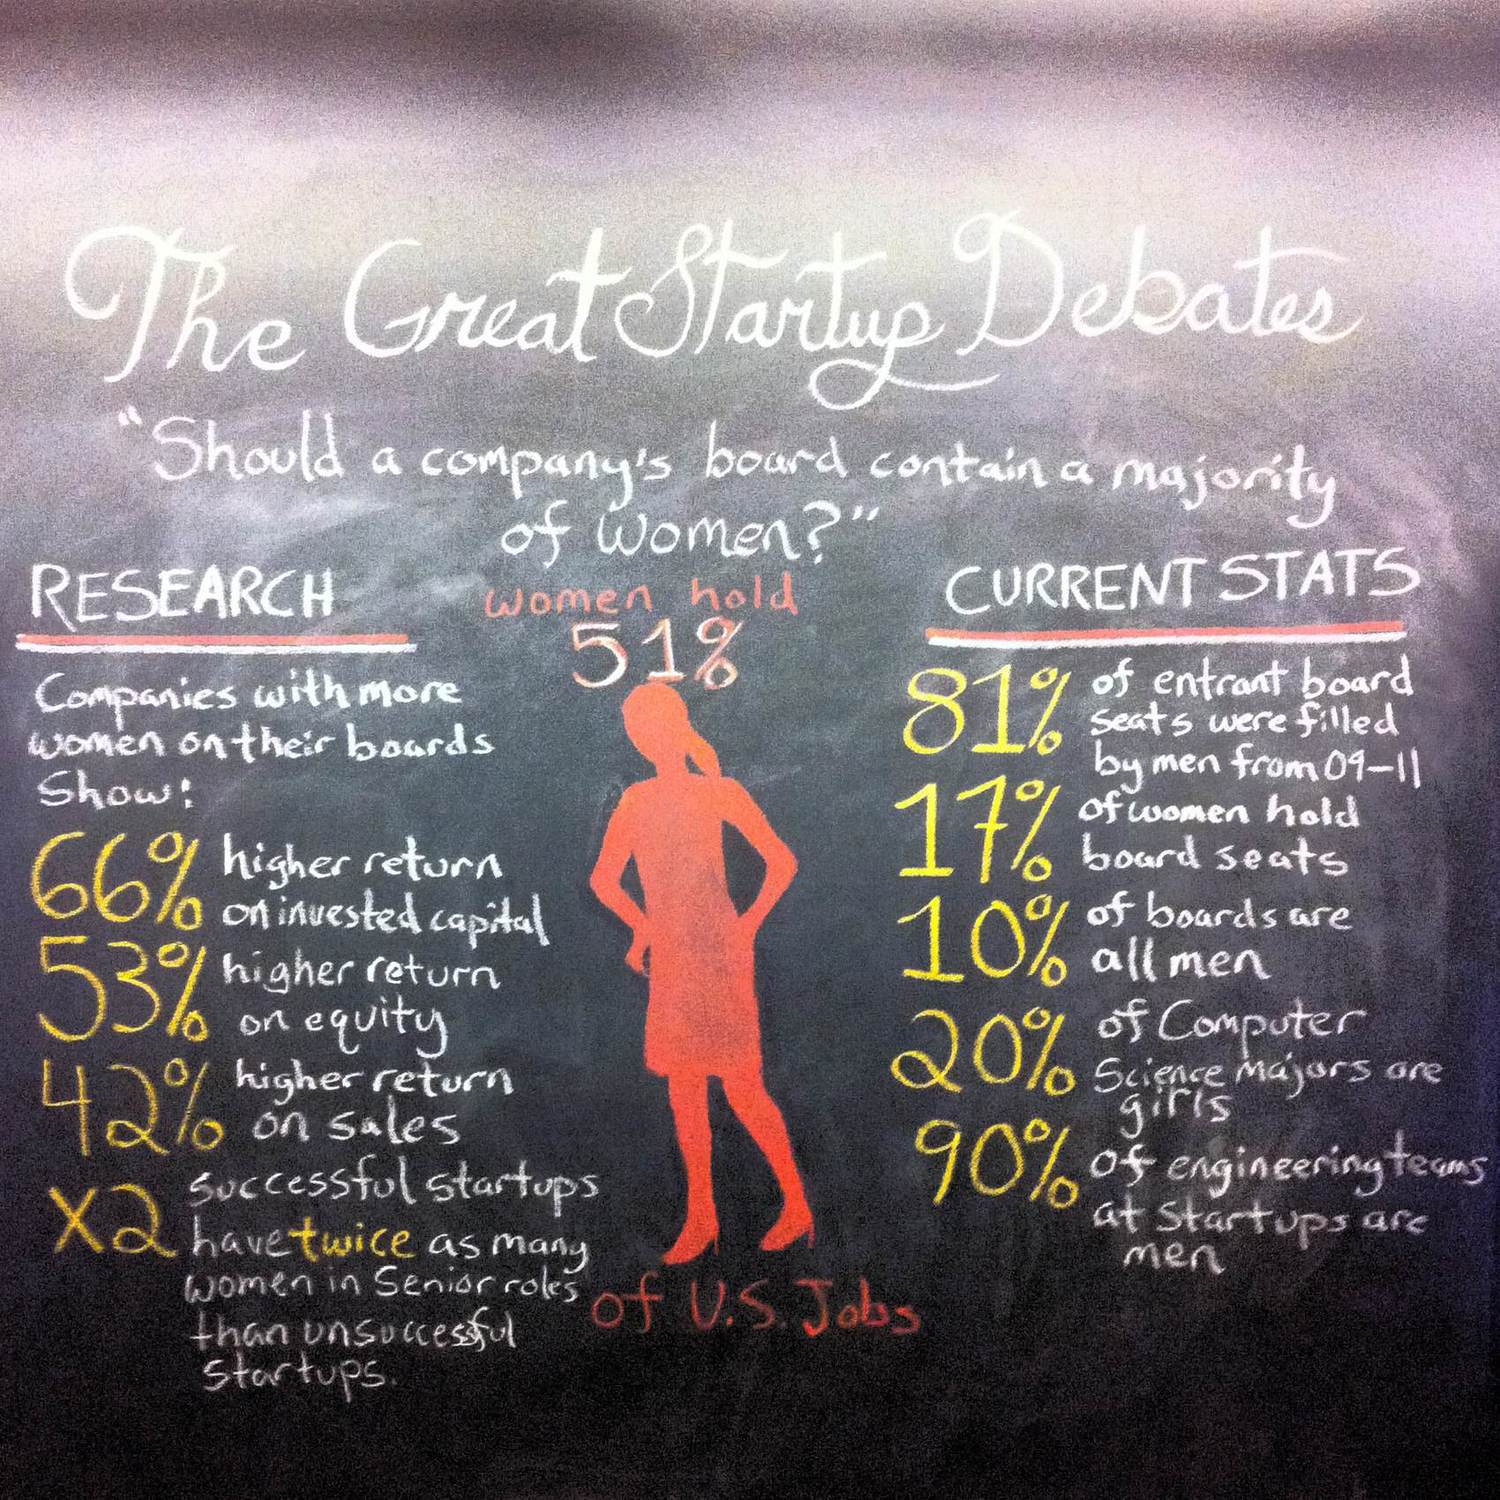 The Great Startup Debates
"Should a company's board contain a majority
of women?"
RESEARCH
Companies with more
women on their boards
Show:
66% higher return
on invested capital
53% higher return
on equity
42% higher return
on sales
X2 successful startups
have twice as many
women in Senior roles
than unsuccessful
startups.
women hold
51%
of U.S. Jobs
CURRENT STATS
81% of entrant board
seats were filled
by men from 09-11
17% of women hold
board seats
10% of boards are
all men
20% of Computer
Science Majors are
girls
90% of engineering teams
at Startups are
men